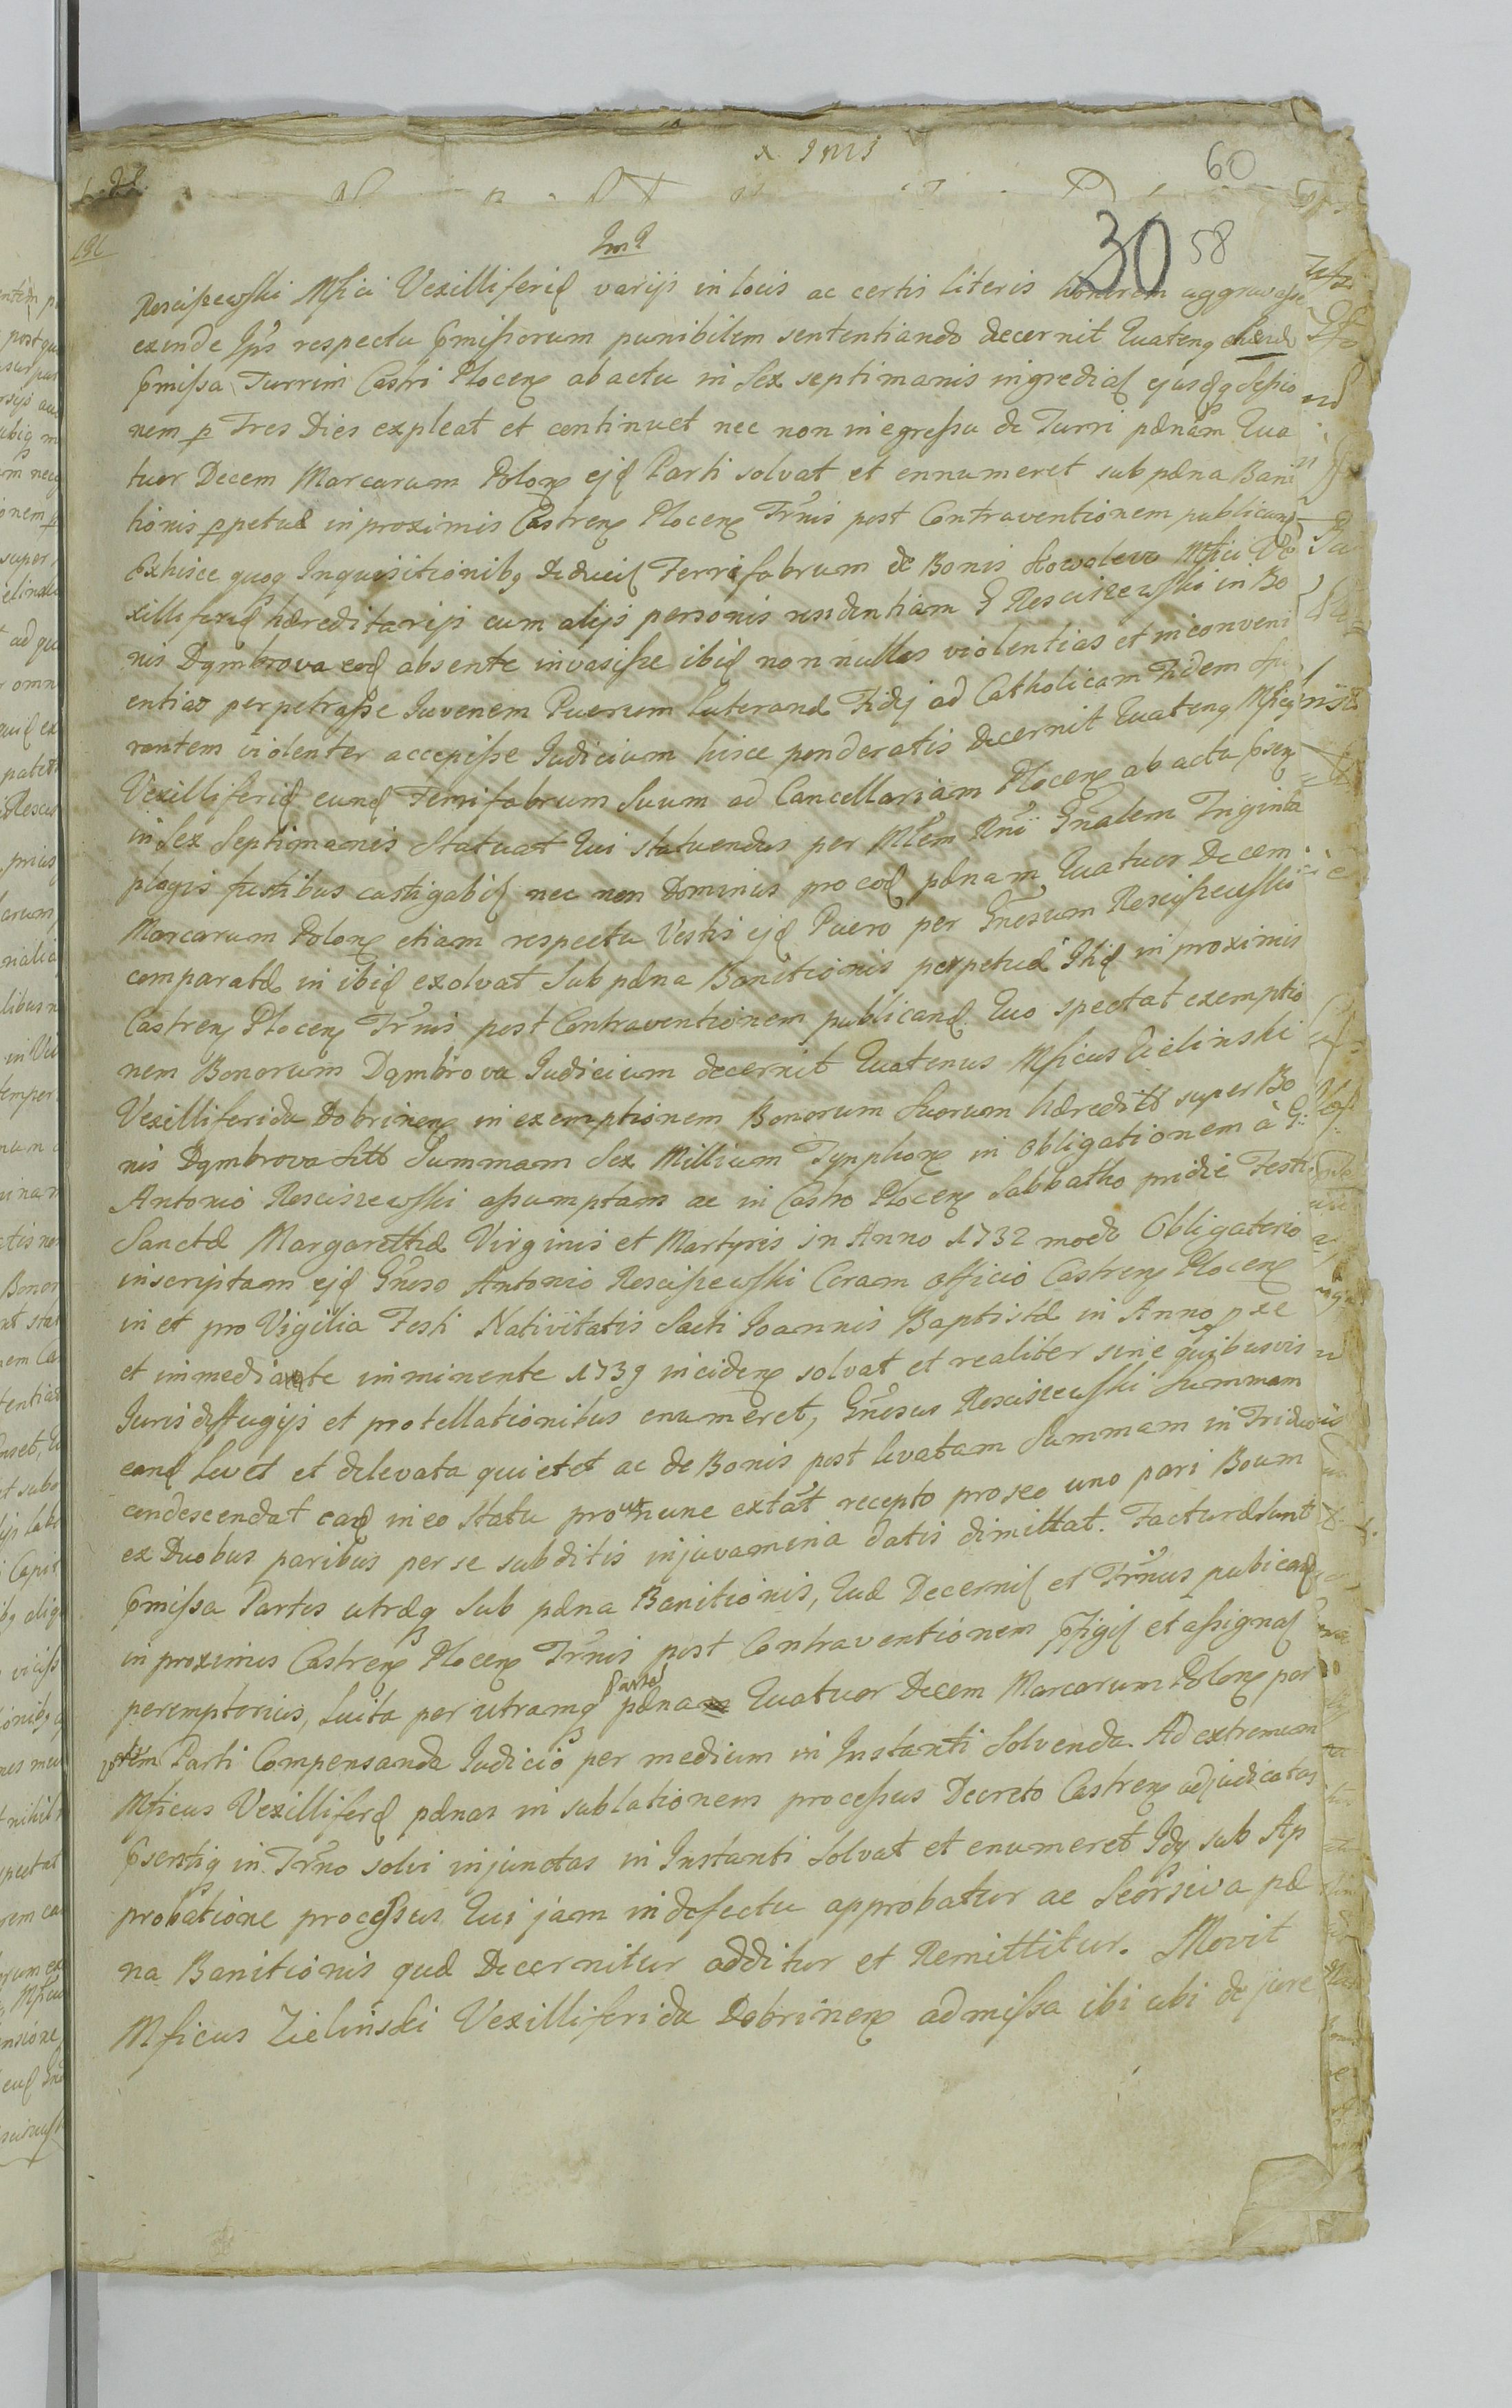 60
30 58
Resciszewski Mfici Vexilliferid varijs in locis ac certis literis honorem aggravasse
exinde Ips respectu pmissorum punibilem sententiando decernit Quateng
pmissa Turrim Castri Plocen ab actu in Sex septimanis ingredia ejusdq sessio
nem p Tres Dies expleat et continuet nec non in egressu de Turri pænam Qua
tuor Decem Marcarum Polon ejd Parti solvat et ennumeret sub pæna Bani
tionis ppetuæ in proximis Castren Plocen Trnis post Contraventionem publicand
Exhisce quoq Inquisitionibq deducit Ferrifabrum de Bonis Kowalewo Mfici Ve
xilliferid hæreditarijs cum alijs personis residentiam G Resciszewski in Bo
nis Dąmbrova eod absente invasisse ibid non nullas violentias et inconveni
entias perpetrasse Iuvenem Puerum Luteranæ Fidej ad Catholicam Fidem
rantem violenter accepisse Iudicium hisce ponderatis Decernit Quateng Mficq
Vexilliferid eund Ferrifabrum Suum ad Cancellariam Plocen ab actu psen
in Sex Septimanis Statuat Qui statuendus per Mlem Rni Gnalem Triginta
plagis fustibus castigabit nec non Dominus pro eod pænam Quatuor Decem
Marcarum Polon etiam respectu Vestis ejd Puero per Gnosum Resciszewski
comparatæ in ibid exolvat Sub pæna Banitionis perpetuæ Itid in proximis
Castren Plocen Trnis post Contraventionem publicand. Quo spectat exemptio
nem Bonorum Dąmbrova Iudicium decernit Quatenus Mficus Zielinski
Vexilliferida Dobrinen in exemptionem Bonorum Suorum hæredit super Bo
nis Dąmbrova Sitt Summam Sex Millium Tynphon in obligationem à G:
Antonio Resciszewski assumptam ac in Castro Plocen Sabbatho pridie Festi
Sanctæ Margarettæ Virginis et Martyris in Anno 1732 modo Obligatorio
inscriptam ejd Gnoso Antonio Resciszewski Coram Officio Castren Plocen
in et pro Vigilia Festi Nativitatis Sacti Ioannis Baptistæ in Anno
et immediate imminente 1739 inciden solvat et realiter sine quibusvis
Iuris diffugijs et protellationibus enumeret, Gnosus Resciszewski Summam
eand Levet et de levata quietet ac de Bonis post levatam Summam in Triduo
condescendat ead in eo Statu prout nunc extat recepto pro seo uno pari Boum
ex Duobus paribus per se subditis in juvamina datis dimittat. Facturæ sunt
pmissa Partes utræq Sub pæna Banitionis, Quæ Decernit et Trnus pubicand
in proximis Castren Plocen Trnis post Contraventionem pfigit et assignat
peremptorius, Luita per utramq Partes pæna Quatuor Decem Marcarum Polon per
Parti Compensanda Iudicio per medium in Instanti Solvenda. Ad extremum
Mficus Vexilliferd pænas in sublationem processus Decreto Castren adjudicatas
psentiq in Trno solvi injunctas in Instanti Solvat et enumeret Idq sub Ap
probatione processus Qui jam in defectu approbatur ac Seorsiva pæ
na Banitionis quæ Decernitur additur et Remittitur. Movit
Mficus Zielinski Vexilliferida Dobrinen admissa ibi ubi de jure